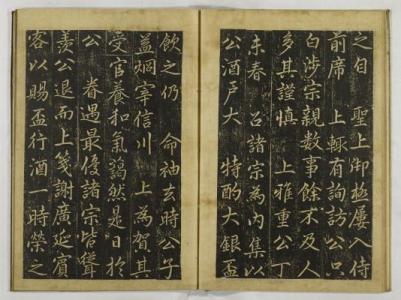 之自　聖上御極屢入侍
前席　上輙有詢訪公只
白涉宗親數事餘不及人
多其謹慎　上雅重公丁
未春　召諸宗為内集以
公酒戶大　特酌大銀盃
飲之仍　命袖去時公子
益炯宰信川　上為賀其
受官養和氣藹然是日於
公　眷遇最優諸宗皆聳
羨公退而上箋謝廣延賓
客以賜盃行酒一時榮之